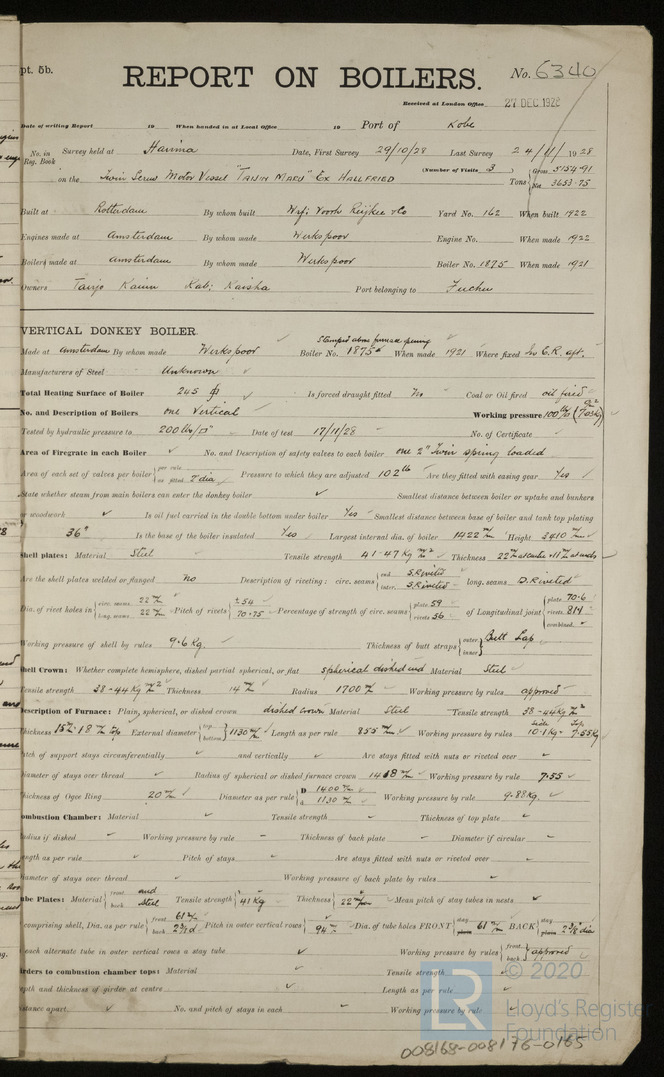 pt. 5b.
REPORT ON BOILERS.
No. 6340
Received at London Office 27 DEC 1928
Date of writing Report 19 When handed in at Local Office 19 Port of Kobe
No. in Reg. Book Survey held at Harima Date, First Survey 29/10/28 Last Survey 24/11/1928
(Number of Visits 3)
on the Twin Screw Motor Vessel "TAIYIN MARU" Ex HALLFRIED Tons Gross 5154.91 Net 3653.75
Built at Rotterdam By whom built Yard No. 162 When built 1922
Engines made at Amsterdam By whom made Werkspoor Engine No. When made 1922
Boilers made at Amsterdam By whom made Werkspoor Boiler No. 1875 When made 1921
Owners Kaiun Kab: Kaisha Port belonging to Fuchu
VERTICAL DONKEY BOILER.
Stamped above furnace opening
Made at Amsterdam By whom made Werkspoor Boiler No. 1875 When made 1921 Where fixed In E.R. aft.
Manufacturers of Steel Unknown
Total Heating Surface of Boiler 245 Is forced draught fitted No Coal or Oil fired oil fired
No. and Description of Boilers one Vertical Working pressure 100 lb/□" (7.03 Kg)
Tested by hydraulic pressure to 200 lbs/□" Date of test 17/11/28 No. of Certificate
Area of Firegrate in each Boiler No. and Description of safety valves to each boiler one 2" Twin spring loaded
Area of each set of valves per boiler per rule as fitted 2" dia Pressure to which they are adjusted 102 lb Are they fitted with easing gear Yes
State whether steam from main boilers can enter the donkey boiler Smallest distance between boiler or uptake and bunkers
or woodwork Is oil fuel carried in the double bottom under boiler Yes Smallest distance between base of boiler and tank top plating
36" Is the base of the boiler insulated Yes Largest internal dia. of boiler 1422 m/m Height 3410 m/m
Shell plates: Material Steel Tensile strength 41-47 Kg m/m² Thickness 22 m/m at centre + 11 m/m at ends
Are the shell plates welded or flanged No Description of riveting: circ. seams end S.Riveted inter. S.Riveted long. seams D.Riveted
Dia. of rivet holes in circ. seams 22 m/m long. seams 22 m/m Pitch of rivets 54 70.75 Percentage of strength of circ. seams plate 59 rivets 36 of Longitudinal joint plate 70.6 rivets 81.4 combined
Working pressure of shell by rules 9.6 Kg. Thickness of butt straps outer inner Butt Lap
Shell Crown: Whether complete hemisphere, dished partial spherical, or flat spherical dished end Material Steel
Tensile strength 38-44 Kg m/m² Thickness 14 m/m Radius 1700 m/m Working pressure by rules approved
Description of Furnace: Plain, spherical, or dished crown dished crown Material Steel Tensile strength 38-44 Kg m/m²
Thickness 15 m/m . 18 m/m top External diameter top bottom 1130 m/m Length as per rule 855 m/m Working pressure by rules side 10.1 Kg - Top 7.55 Kg
Pitch of support stays circumferentially and vertically Are stays fitted with nuts or riveted over
Diameter of stays over thread Radius of spherical or dished furnace crown 1468 m/m Working pressure by rule 7.55
Thickness of Ogee Ring 20 m/m Diameter as per rule D 1400 m/m d 1130 m/m Working pressure by rule 9.88 Kg.
Combustion Chamber: Material Tensile strength Thickness of top plate
Radius if dished Working pressure by rule Thickness of back plate Diameter if circular
Length as per rule Pitch of stays Are stays fitted with nuts or riveted over
Diameter of stays over thread Working pressure of back plate by rules
Tube Plates: Material front and back Steel Tensile strength 41 Kg Thickness 22 m/m Mean pitch of stay tubes in nests
comprising shell, Dia. as per rule front back Pitch in outer vertical rows 94 m/m Dia. of tube holes FRONT stay 61 m/m plain BACK stay plain 2 3/8" dia
each alternate tube in outer vertical rows a stay tube Working pressure by rules front back approved
Girders to combustion chamber tops: Material Tensile strength
Depth and thickness of girder at centre Length as per rule
Distance apart No. and pitch of stays in each Working pressure by rule
LR © 2020
Lloyd's Register
Foundation
008168-008176-0165